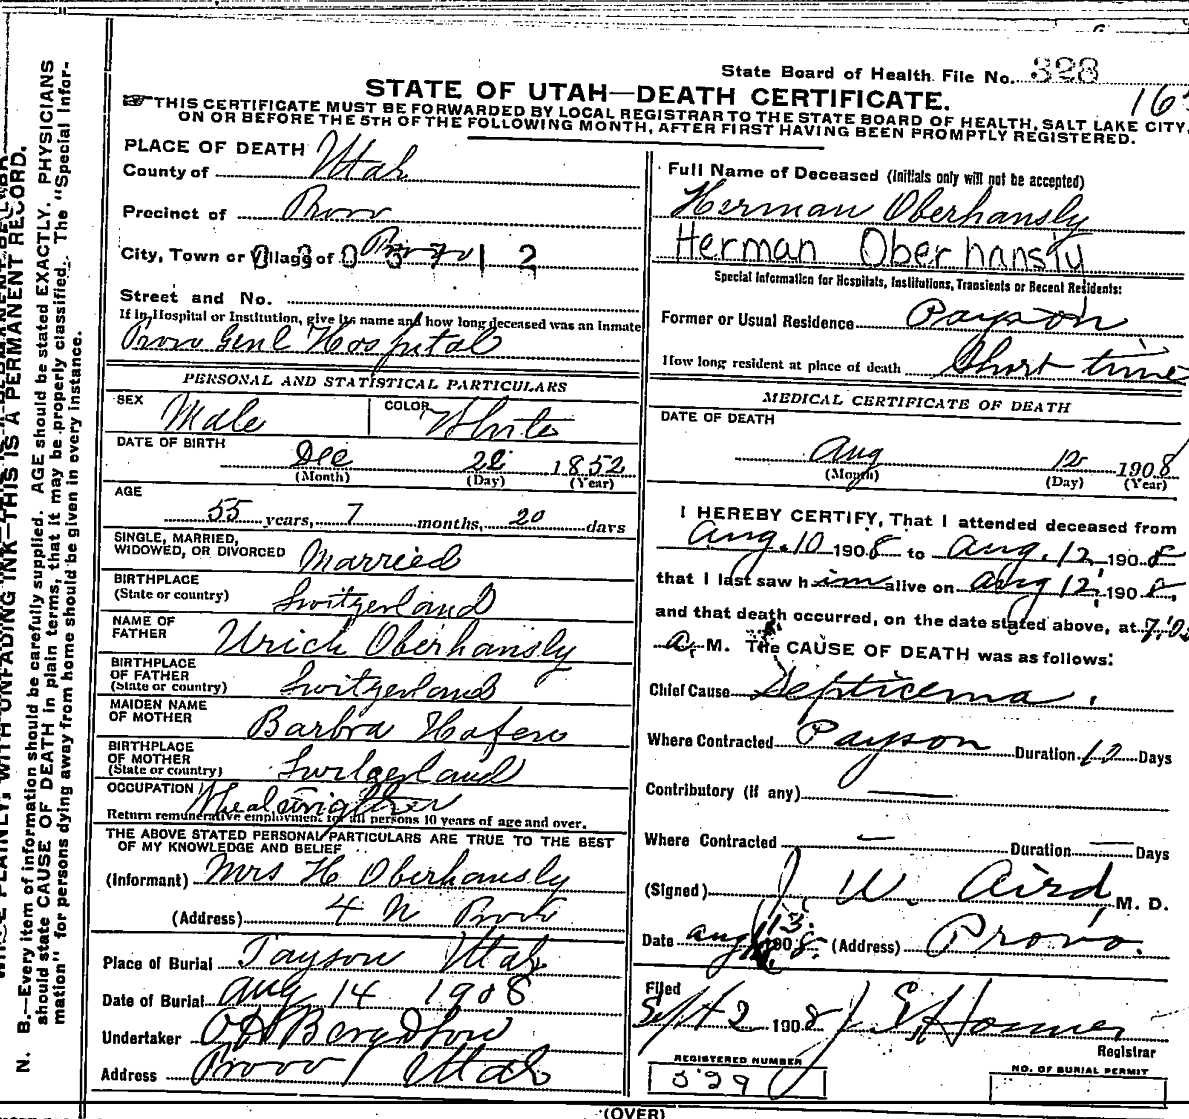 State Board of Health File No. 328
STATE OF UTAH—DEATH CERTIFICATE.
THIS CERTIFICATE MUST BE FORWARDED BY LOCAL REGISTRAR TO THE STATE BOARD OF HEALTH, SALT LAKE CITY,
ON OR BEFORE THE 5TH OF THE FOLLOWING MONTH, AFTER FIRST HAVING BEEN PROMPTLY REGISTERED.
PLACE OF DEATH
County of Utah
Precinct of Provo
City, Town or Village of Provo
Street and No.
If in Hospital or Institution, give its name and how long deceased was an Inmate
Provo Genl Hospital
PERSONAL AND STATISTICAL PARTICULARS
SEX Male COLOR White
DATE OF BIRTH
Dec 22 1852
(Month) (Day) (Year)
AGE
55 years, 7 months, 20 days
SINGLE, MARRIED,
WIDOWED, OR DIVORCED Married
BIRTHPLACE
(State or country) Switzerland
NAME OF
FATHER Urich Oberhansly
BIRTHPLACE
OF FATHER
(State or country) Switzerland
MAIDEN NAME
OF MOTHER Barbra Hafen
BIRTHPLACE
OF MOTHER
(State or country) Switzerland
OCCUPATION
Return remunerative employment for all persons 10 years of age and over.
THE ABOVE STATED PERSONAL PARTICULARS ARE TRUE TO THE BEST
OF MY KNOWLEDGE AND BELIEF
(Informant) Mrs H Oberhansly
(Address) 4 N Provo
Place of Burial Payson Utah
Date of Burial Aug 14 1908
Undertaker
Address Provo Utah
Full Name of Deceased (Initials only will not be accepted)
Herman Oberhansly
Herman Oberhansly
Special Information for Hospitals, Institutions, Transients or Recent Residents:
Former or Usual Residence Payson
How long resident at place of death Short time
MEDICAL CERTIFICATE OF DEATH
DATE OF DEATH
Aug 12 1908
(Month) (Day) (Year)
I HEREBY CERTIFY, That I attended deceased from
Aug. 10 1908 to Aug. 12, 1908
that I last saw him alive on Aug 12, 1908.
and that death occurred, on the date stated above, at 7:05
a. M. The CAUSE OF DEATH was as follows:
Chief Cause Septicema.
Where Contracted Payson Duration 12 Days
Contributory (if any) —
Where Contracted — Duration — Days
(Signed) J. W. Aird, M. D.
Date Aug 13 1908. (Address) Provo.
Filed
Sept 2 1908
Registrar
REGISTERED NUMBER
NO. OF BURIAL PERMIT
(OVER)
N. B.—Every item of information should be carefully supplied. AGE should be stated EXACTLY. PHYSICIANS
should state CAUSE OF DEATH in plain terms, that it may be properly classified. The "Special Infor-
mation" for persons dying away from home should be given in every instance.